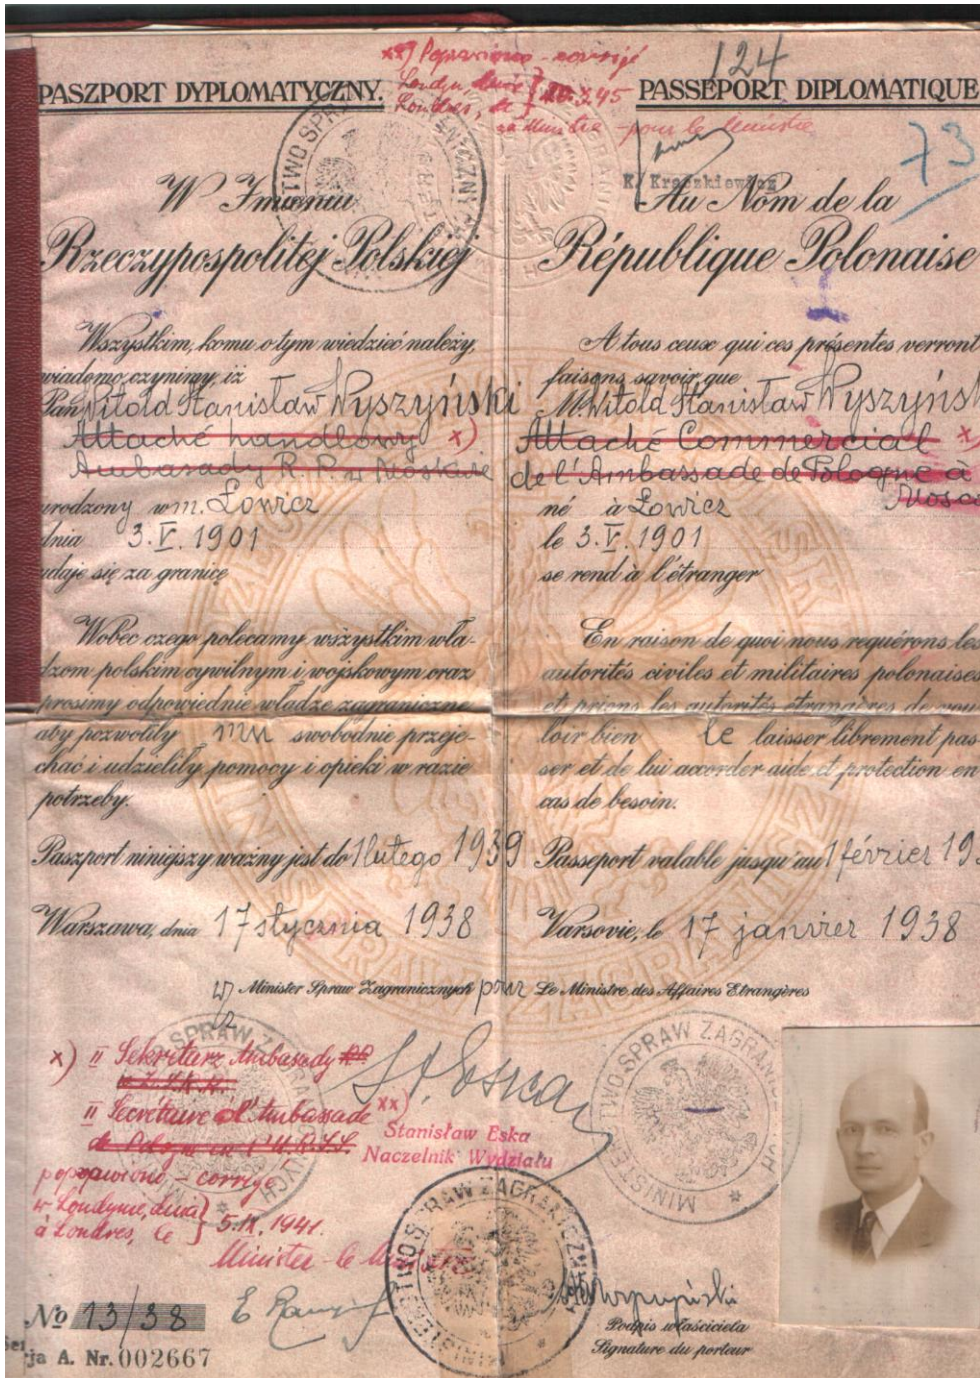 124
xx) Poprawiono - corrigé
Londyn, dnia
Londres, le } 20.X.45
za Ministra - pour le Ministre
PASZPORT DYPLOMATYCZNY.
K. Kraczkiewicz
73
W Imieniu
Rzeczypospolitej Polskiej
Wszystkim, komu o tym wiedzieć należy,
wiadomo czynimy, iż
Pan Witold Stanisław Wyszyński
Attaché handlowy x)
Ambasady R. P. w Moskwie
urodzony w m. Łowicz
dnia 3. V. 1901
udaje się za granicę
Wobec czego polecamy wszystkim wła-
dzom polskim cywilnym i wojskowym oraz
prosimy odpowiednie władze zagraniczne
aby pozwoliły mu swobodnie przeje-
chać i udzieliły pomocy i opieki w razie
potrzeby.
Paszport niniejszy ważny jest do 1 lutego 1939
Warszawa, dnia 17 stycznia 1938
Minister Spraw Zagranicznych
PASSEPORT DIPLOMATIQUE
Au Nom de la
République Polonaise
A tous ceux qui ces présentes verront
faisons savoir que
M. Witold Stanisław Wyszyńsk
Attaché Commercial x
de l'Ambassade de Pologne à
Mosco
né à Łowicz
le 3. V. 1901
se rend à l'étranger
En raison de quoi nous requérons les
autorités civiles et militaires polonaises
et prions les autorités étrangères de vou-
loir bien le laisser librement pas-
ser et de lui accorder aide et protection en
cas de besoin.
Passeport valable jusqu'au 1 février 19
Varsovie, le 17 janvier 1938
pour Le Ministre des Affaires Etrangères
x) II Sekretarz Ambasady RP
w Z.S.R.R.
II Secrétaire d'Ambassade xx)
de Pologne en l'U.R.S.S.
poprawiono - corrigé
w Londynie, dnia
à Londres, le } 5.IX.1941.
Minister - le Ministre
St. Eska
Stanisław Eska
Naczelnik Wydziału
MINISTERSTWO SPRAW ZAGRANICZNYCH
No 13/38
Serja A. Nr. 002667
Podpis właściciela
Signature du porteur